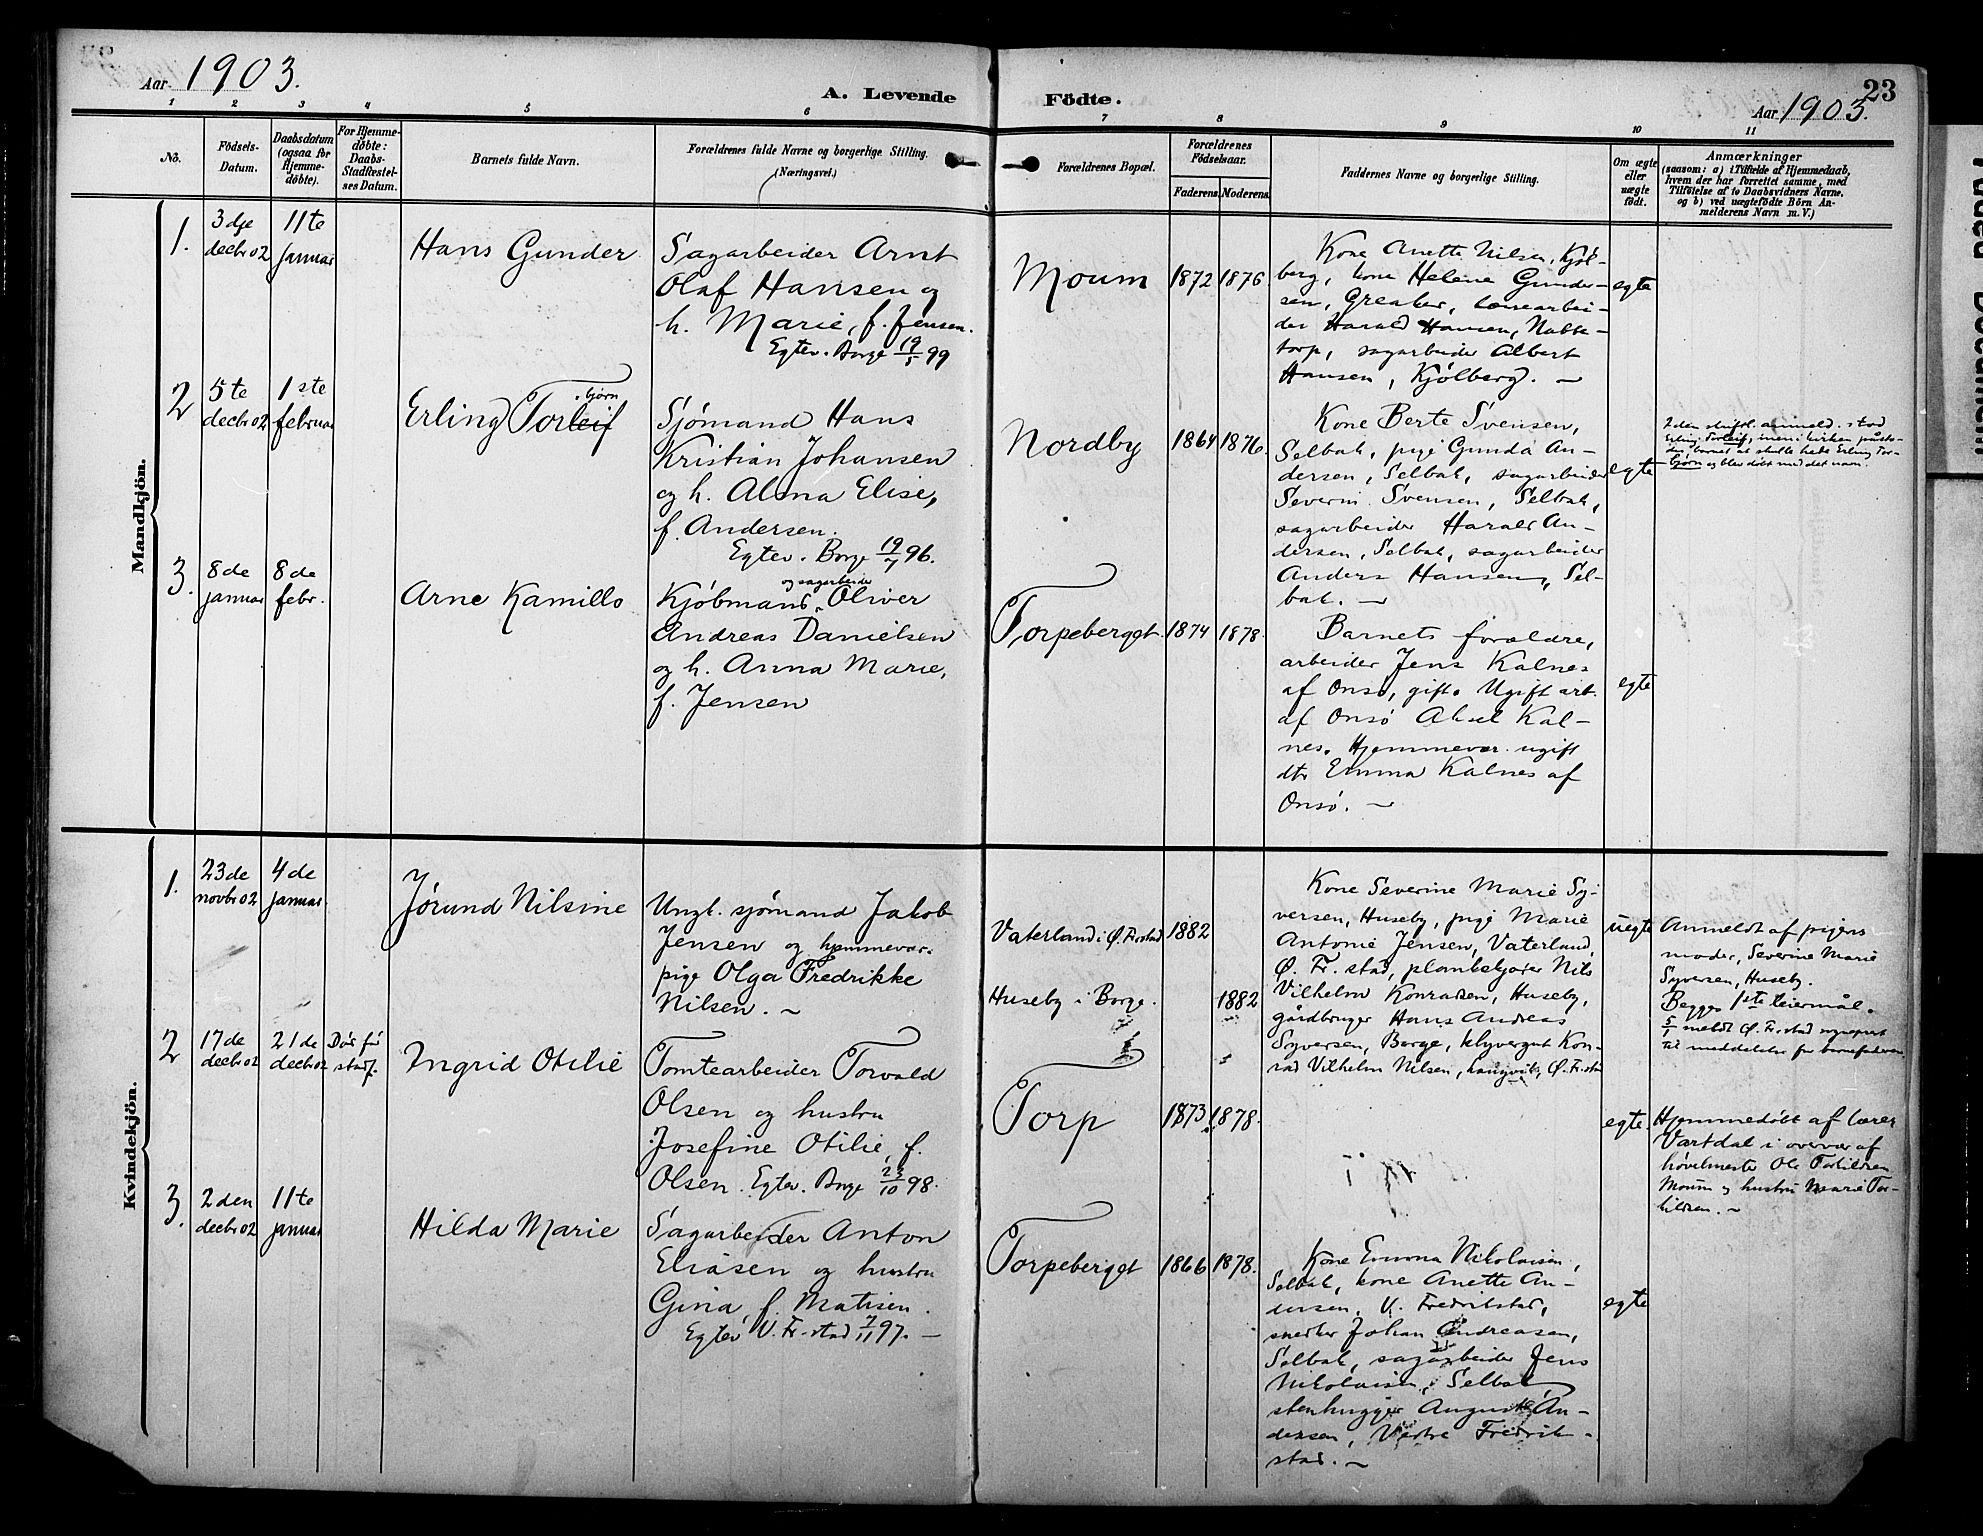 Aar 1903.
A. Levende
Födte.
23
Aar 1903.
1 2 3 4 5 6 7 8 9 10 11
No.
Födsels-
Datum.
Daabsdatum
(ogsaa for
Hjemme-
döbte).
For Hjemme-
döbte:
Daabs-
Stadfæstel-
ses Datum.
Barnets fulde Navn.
Forældrenes fulde Navne og borgerlige Stilling.
(Næringsvei.)
Forældrenes Bopæl.
Forældrenes
Födselsaar.
Faderens.
Moderens.
Faddernes Navne og borgerlige Stilling.
Om ægte
eller
uægte
födt.
Anmærkninger
(saasom: a) i Tilfælde af Hjemmedaab,
hvem der har forrettet samme, med
Tilföielse af to Daabsvidners Navne,
og b) ved uægtefödte Börn An-
melderens Navn m. V.)
Mandkjön.
1.
3dje
decbr 02
11te
januar
Hans Gunder
Sagarbeider Arnt
Olaf Hansen og
h. Marie, f. Jensen.
Egtev. Borge 19/5 99
Moum
1872
1876
Kone Anette Nilsen, Kjøl-
berg, kone Helene Gunder-
sen, Greaker, lænsearbei-
der Harald Hansen, Nabbe-
torp, sagarbeider Albert
Hansen, Kjølberg. —
egte
2
5te
decbr 02
1ste
februar
Erling Torleif
bjørn
Sjømand Hans
Kristian Johansen
og h. Alma Elise,
f. Andersen.
Egtev. Borge 19/7 96.
Nordby
1864
1876.
Kone Berte Svensen,
Selbak, pige Gunda An-
dersen, Selbak, sagarbeider
Severin Svensen, Selbak,
sagarbeider Harald An-
dersen, Selbak, sagarbeider
Anders Hansen, Sel-
bak. —
egte
I den skriftl. anmeld. stod
Erling Torleif, men i kirken påsto-
des, barnet at skulle hede Erling Tor-
bjørn og blev døbt med det navn.
3.
8de
januar
8de
febr.
Arne Kamillo
og sagarbeide
Kjøbmand Oliver
Andreas Danielsen
og h. Anna Marie,
f. Jensen
Torpeberget
1874
1878.
Barnets forældre,
arbeider Jens Kalnes
af Onsø, gift. Ugift arb.
af Onsø Aksel Kal-
nes. Hjemmevær. ugift
dtr Emma Kalnes af
Onsø. —
egte
Kvindekjön.
1.
23de
novbr 02
4de
januar
Jørund Nilsine
Ungk. sjømand Jakob
Jensen og hjemmevær.
pige Olga Fredrikke
Nilsen. —
Vaterland i Ø. Fr.stad
1882
Huseby i Borge.
1882
Kone Severine Marie Sy-
versen, Huseby, pige Marie
Antonie Jensen, Vaterland,
Ø. Fr.stad, plankekjører Nils
Vilhelm Konradsen, Huseby,
gårdbruger Hans Andreas
Syversen, Borge, klyvergut Kon-
rad Vilhelm Nilsen, Ø. Fr.stad
uegte
Anmeldt af pigens
moder, Severine Marie
Syversen, Huseby.
Begges 1ste leiermål.
5/1 meldt Ø. Fr.stad sognepræst
til meddelelse for barnefaderen
2
17de
decbr 02
21de
decbr 02
Død før
stadf.
Ingrid Otilie
Tomtearbeider Torvald
Olsen og hustru
Josefine Otilie, f.
Olsen. Egtev. Borge 23/10 98.
Torp
1873
1878.
egte.
Hjemmedøbt af lærer
Vartdal i overvær af
høvelmester Ole Torkildsen
Moum og hustru Marie Tor-
kildsen. —
3.
2den
decbr 02
11te
januar
Hilda Marie
Sagarbeider Anton
Eliasen og hustru
Gina, f. Matisen.
Egtev V. Fr.stad 7/11 97. —
Torpeberget
1866
1878.
Kone Emma Nikolaisen,
Selbak, kone Anette An-
dersen, V. Fredrikstad,
snedker Johan Andreasen,
Selbak, sagarbeider Jens
Nikolaisen, Selbak
stenhugger August An-
dersen, Vestre Fredrik-
stad. —
egte